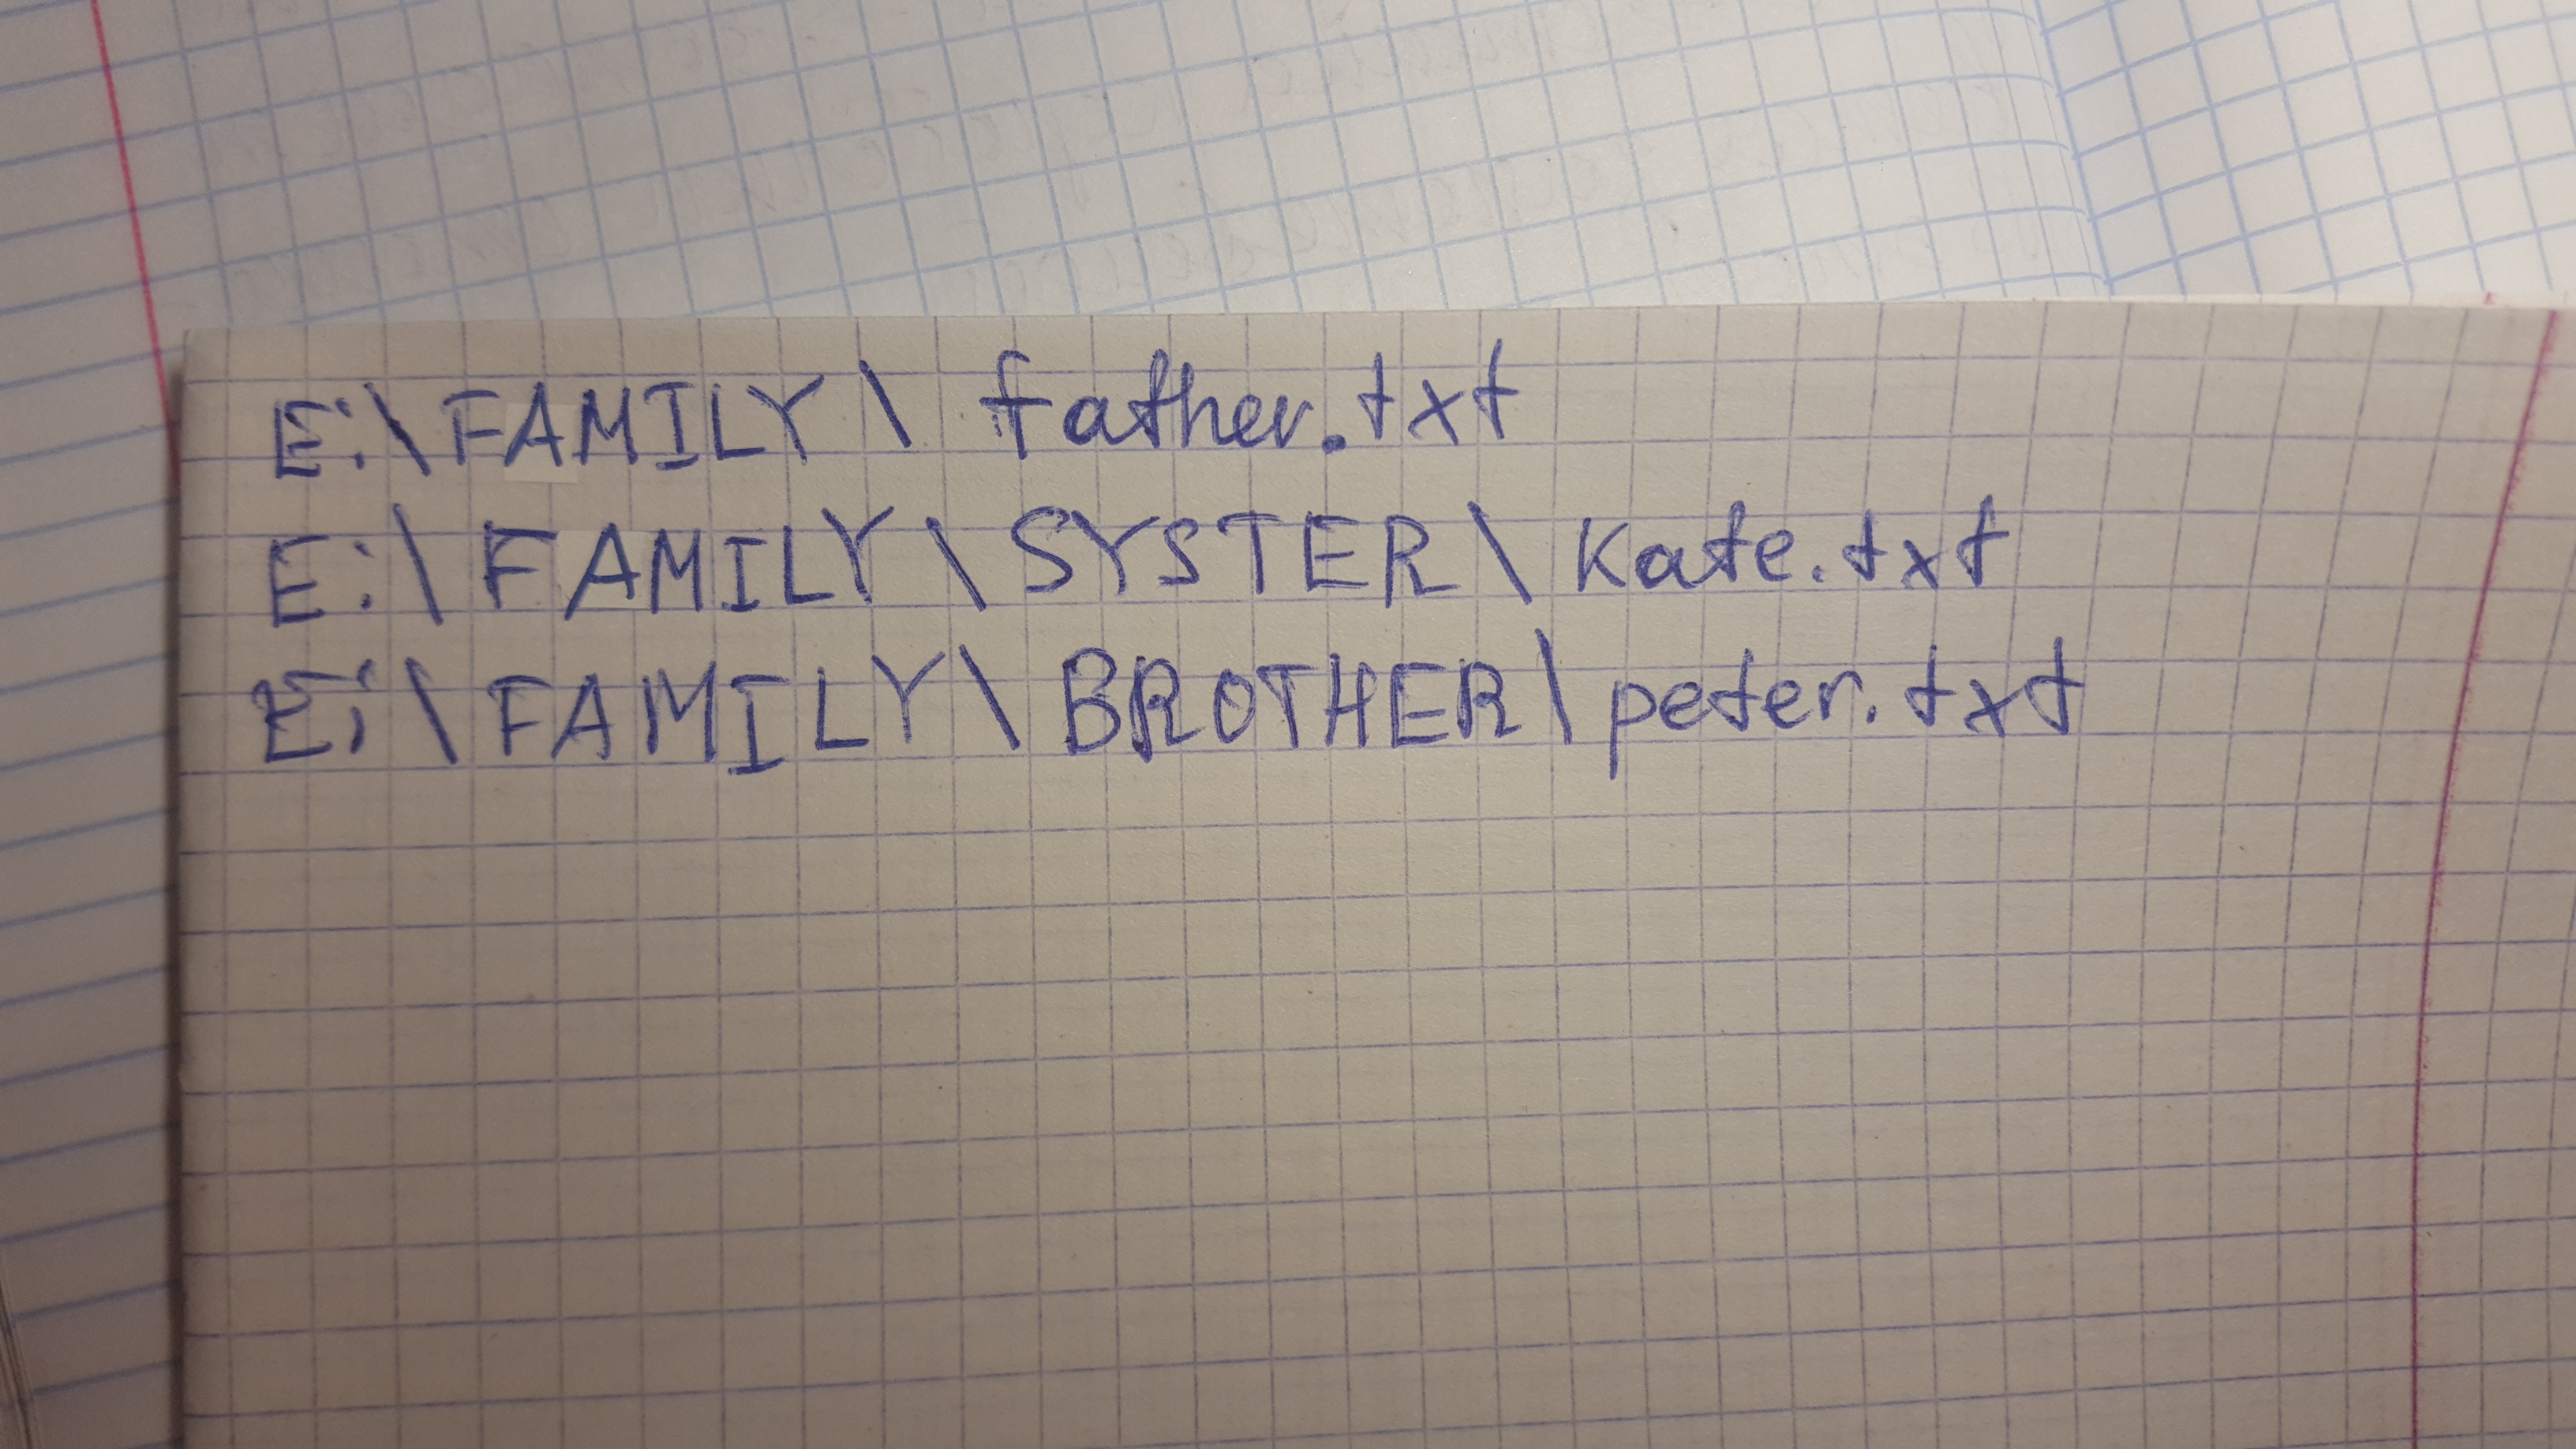 E:\FAMILY\ father.txt
E:\FAMILY\SYSTER\Kate.txt
E:\FAMILY\BROTHER\peter.txt